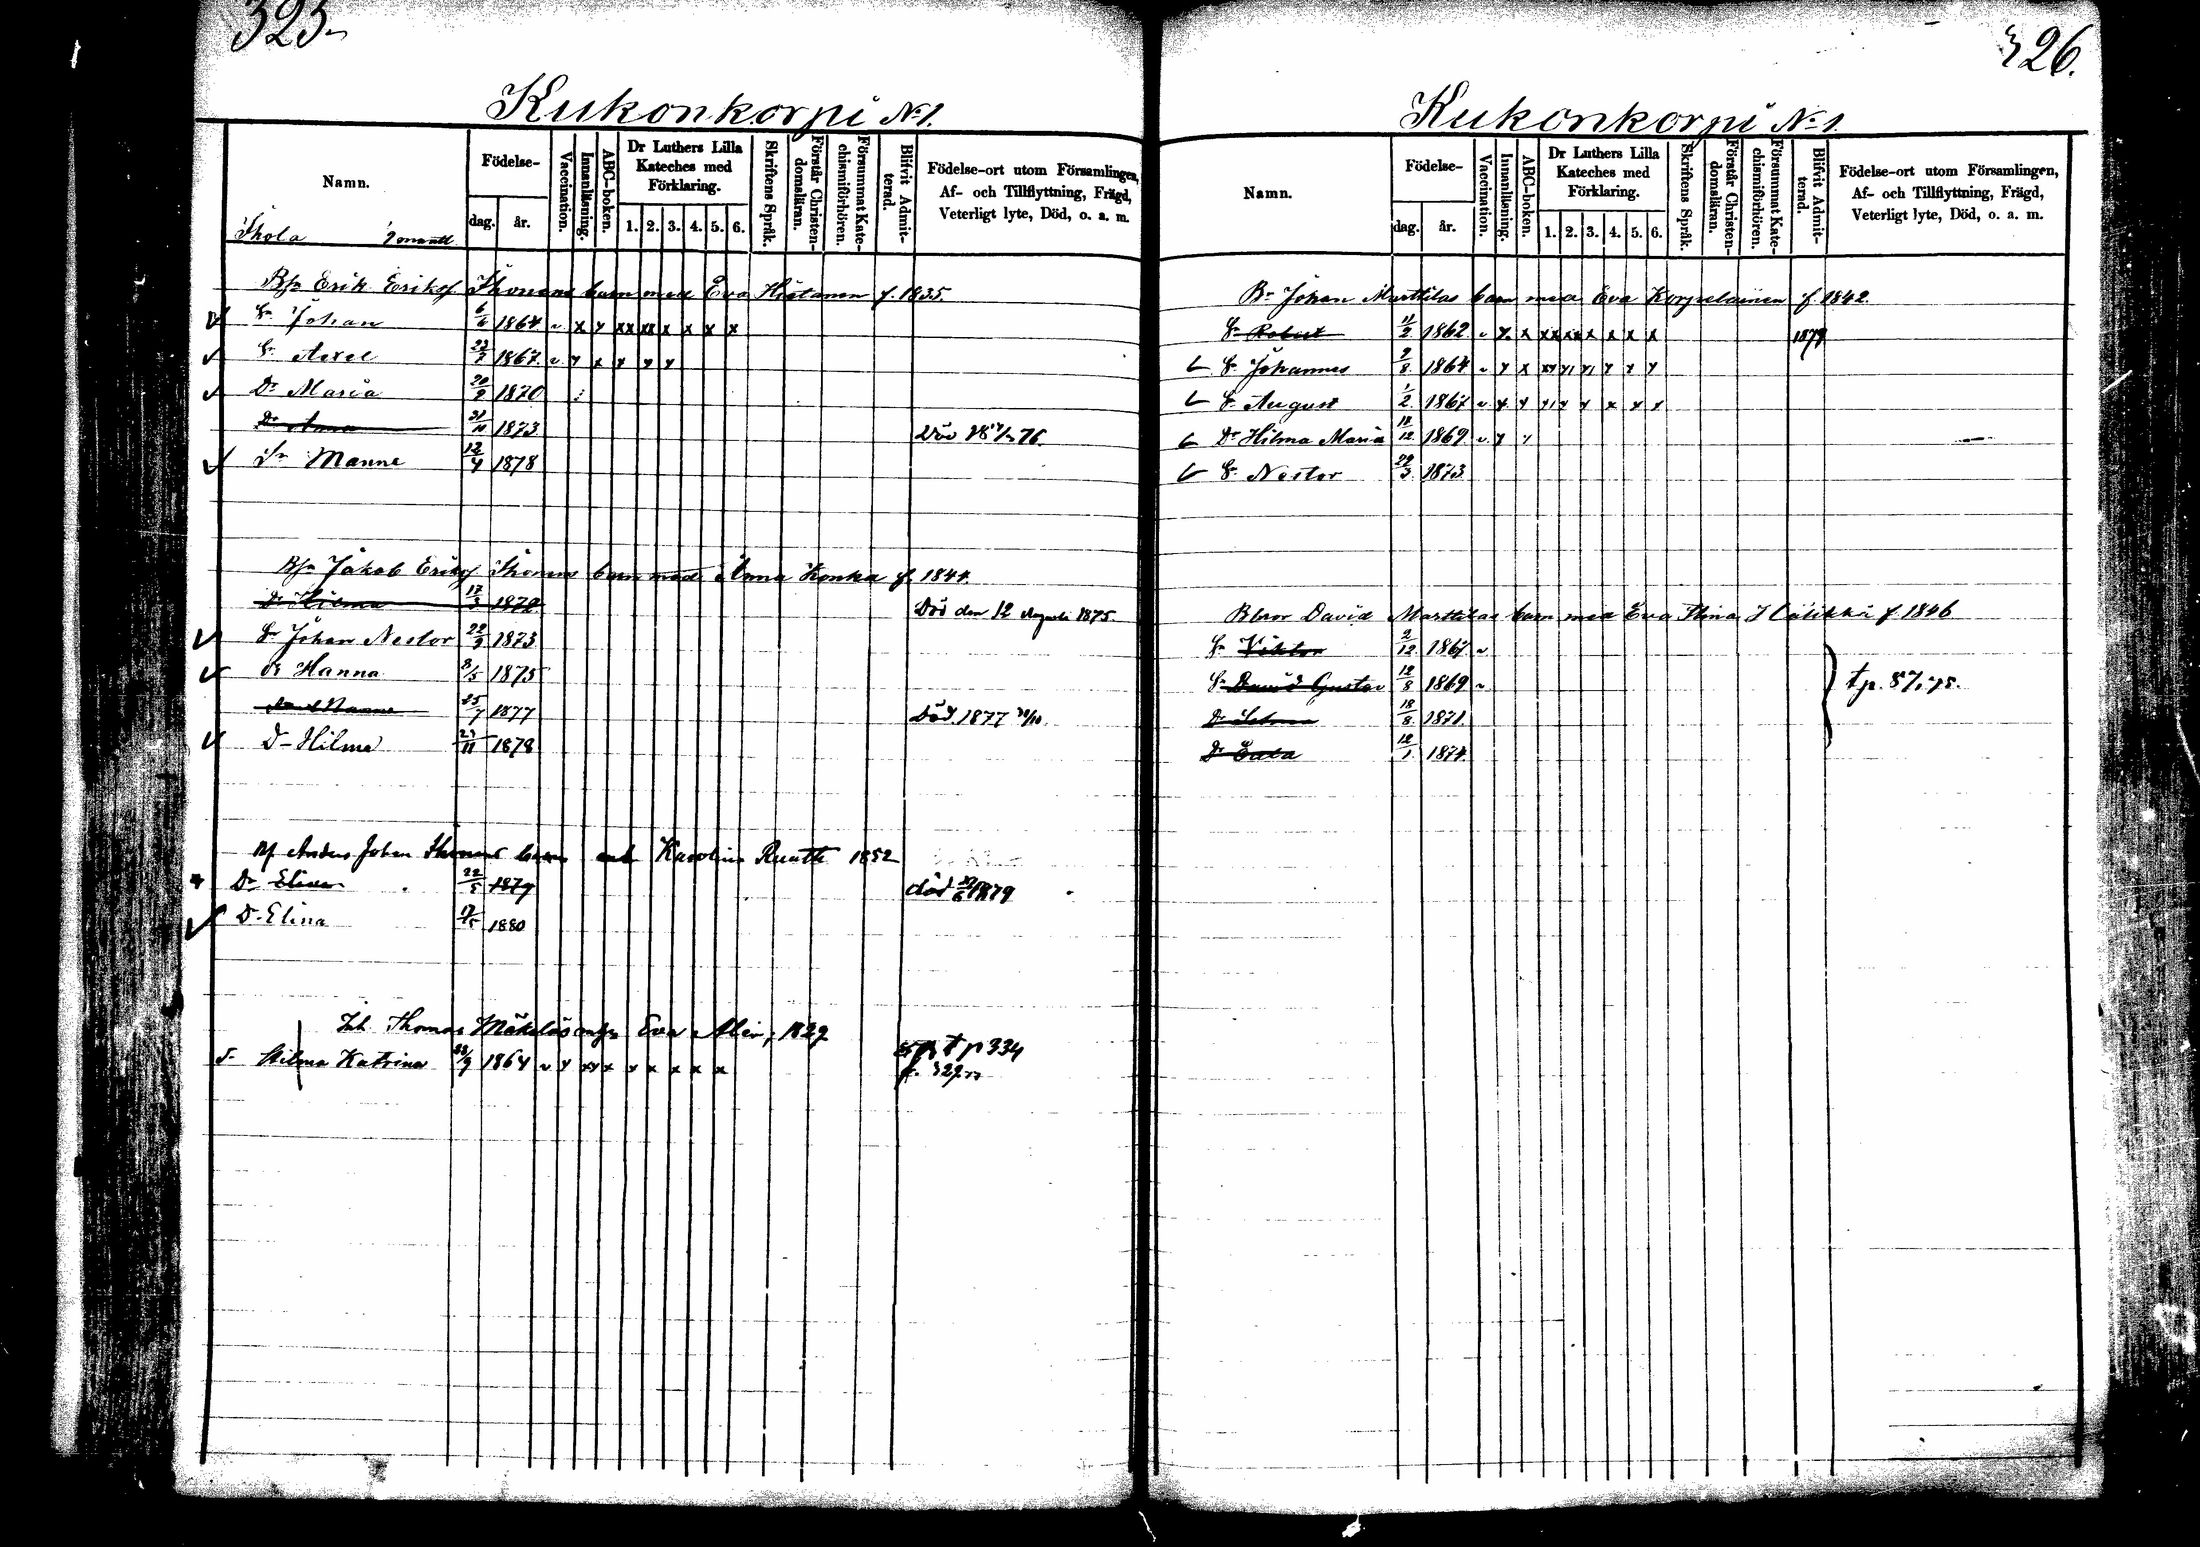 325
Kukonkorpi No 1.
Namn.
Födelse-
dag.
år.
Vaccination.
Innanläsning.
ABC-boken.
Dr Luthers Lilla Kateches med Förklaring.
1. 2. 3. 4. 5. 6.
Skriftens Språk.
Förstår Christen-domsläran.
Försummat Kate-chismiförhören.
Blifvit Admit-terad.
Födelse-ort utom Församlingen,
Af- och Tillflyttning, Frägd,
Veterligt lyte, Död, o. a. m.
Ikola
Erik Eriksf Ikonens barn med Eva Hietanen f. 1835.
Sn Johan 6/6 1864 v x y xx xx x x x x
Sn Axel 23/7 1867 v y x y y y
Dr Maria 20/9 1870
Dr Anna 21/11 1873 Död 76
Sn Manne 12/4 1878
Jakob Eriksf Ikonens barn med Anna Konka f. 1844.
Dr Hilma 17/3 1870 Död den 12 Augusti 1875.
Sn Johan Nestor 22/9 1873
Dr Hanna 8/5 1875
Manne 25/7 1877 Död 1877
D- Hilma 23/11 1878
Anders Johan Ikonens barn med Karolina Ruuth 1852
Dr Elina 22/5 1879 död 1879
D- Elina 17/5 1880
Thomas Mäkeläs Eva 1829
Hilma Katrina 28/9 1864 v y xyx y x x x x tp 334
f. 329
326.
Kukonkorpi No 1.
Namn.
Födelse-
dag.
år.
Vaccination.
Innanläsning.
ABC-boken.
Dr Luthers Lilla Kateches med Förklaring.
1. 2. 3. 4. 5. 6.
Skriftens Språk.
Förstår Christen-domsläran.
Försummat Kate-chismiförhören.
Blifvit Admit-terad.
Födelse-ort utom Församlingen,
Af- och Tillflyttning, Frägd,
Veterligt lyte, Död, o. a. m.
Johan Marttilas barn med Eva Korpelainen f. 1842.
Sn Robert 11/2 1862 v y x xx xx x x x x 1879
Sn Johannes 9/8 1864 v y x xy y y y y y
Sn August 1/2 1867 v x y y y y x x x
Dr Hilma Maria 18/12 1869 v y y
Sn Nestor 29/3 1873
David Marttilas barn med Eva Stina f. 1846
Sn Viktor 2/12 1867 v
Sn David Gustav 12/8 1869 v tp. 87, 75.
Dr Selma 18/8 1871
Dr 12/1 1874